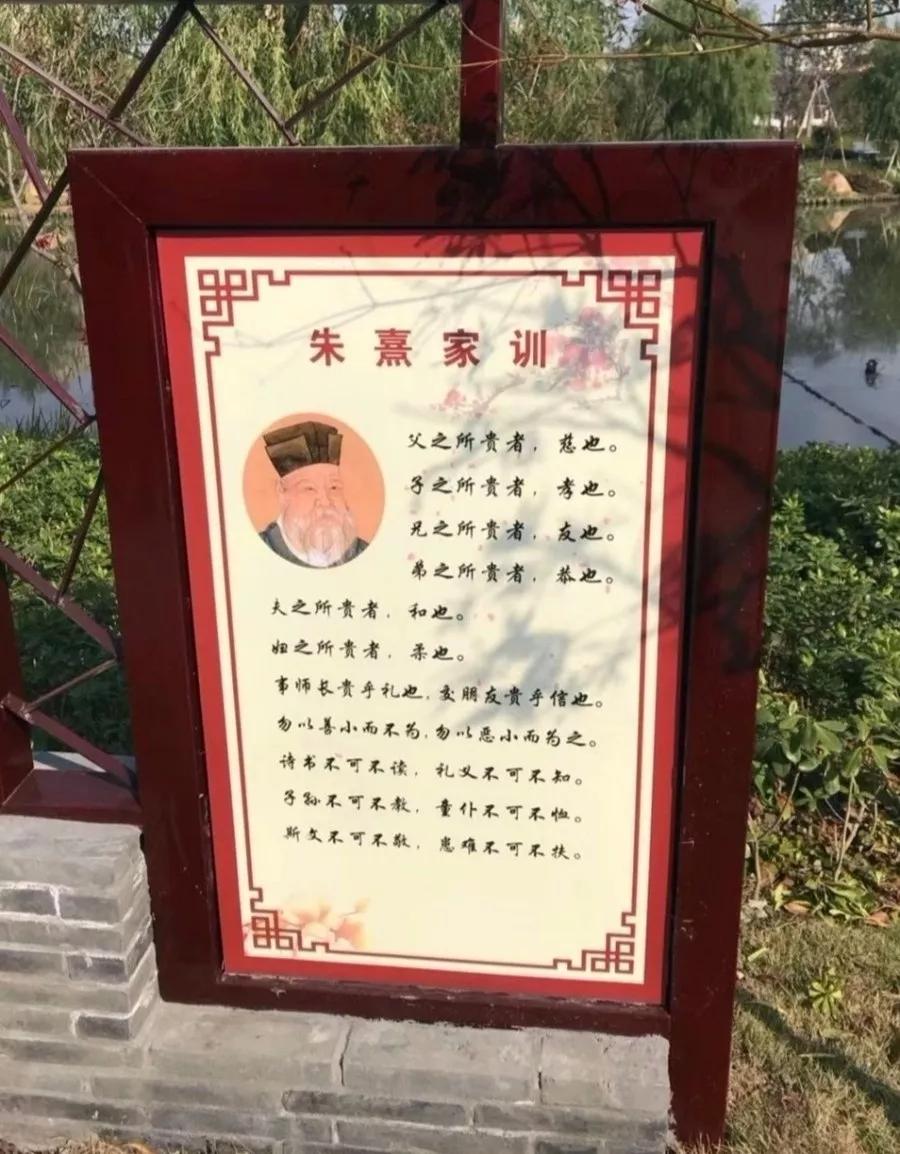 朱熹家训
父之所贵者，慈也。
子之所贵者，孝也。
兄之所贵者，友也。
弟之所贵者，恭也。
夫之所贵者，和也。
妇之所贵者，柔也。
事师长贵乎礼也，交朋友贵乎信也。
勿以善小而不为，勿以恶小而为之。
诗书不可不读，礼义不可不知。
子孙不可不教，童仆不可不恤。
斯文不可不敬，患难不可不扶。